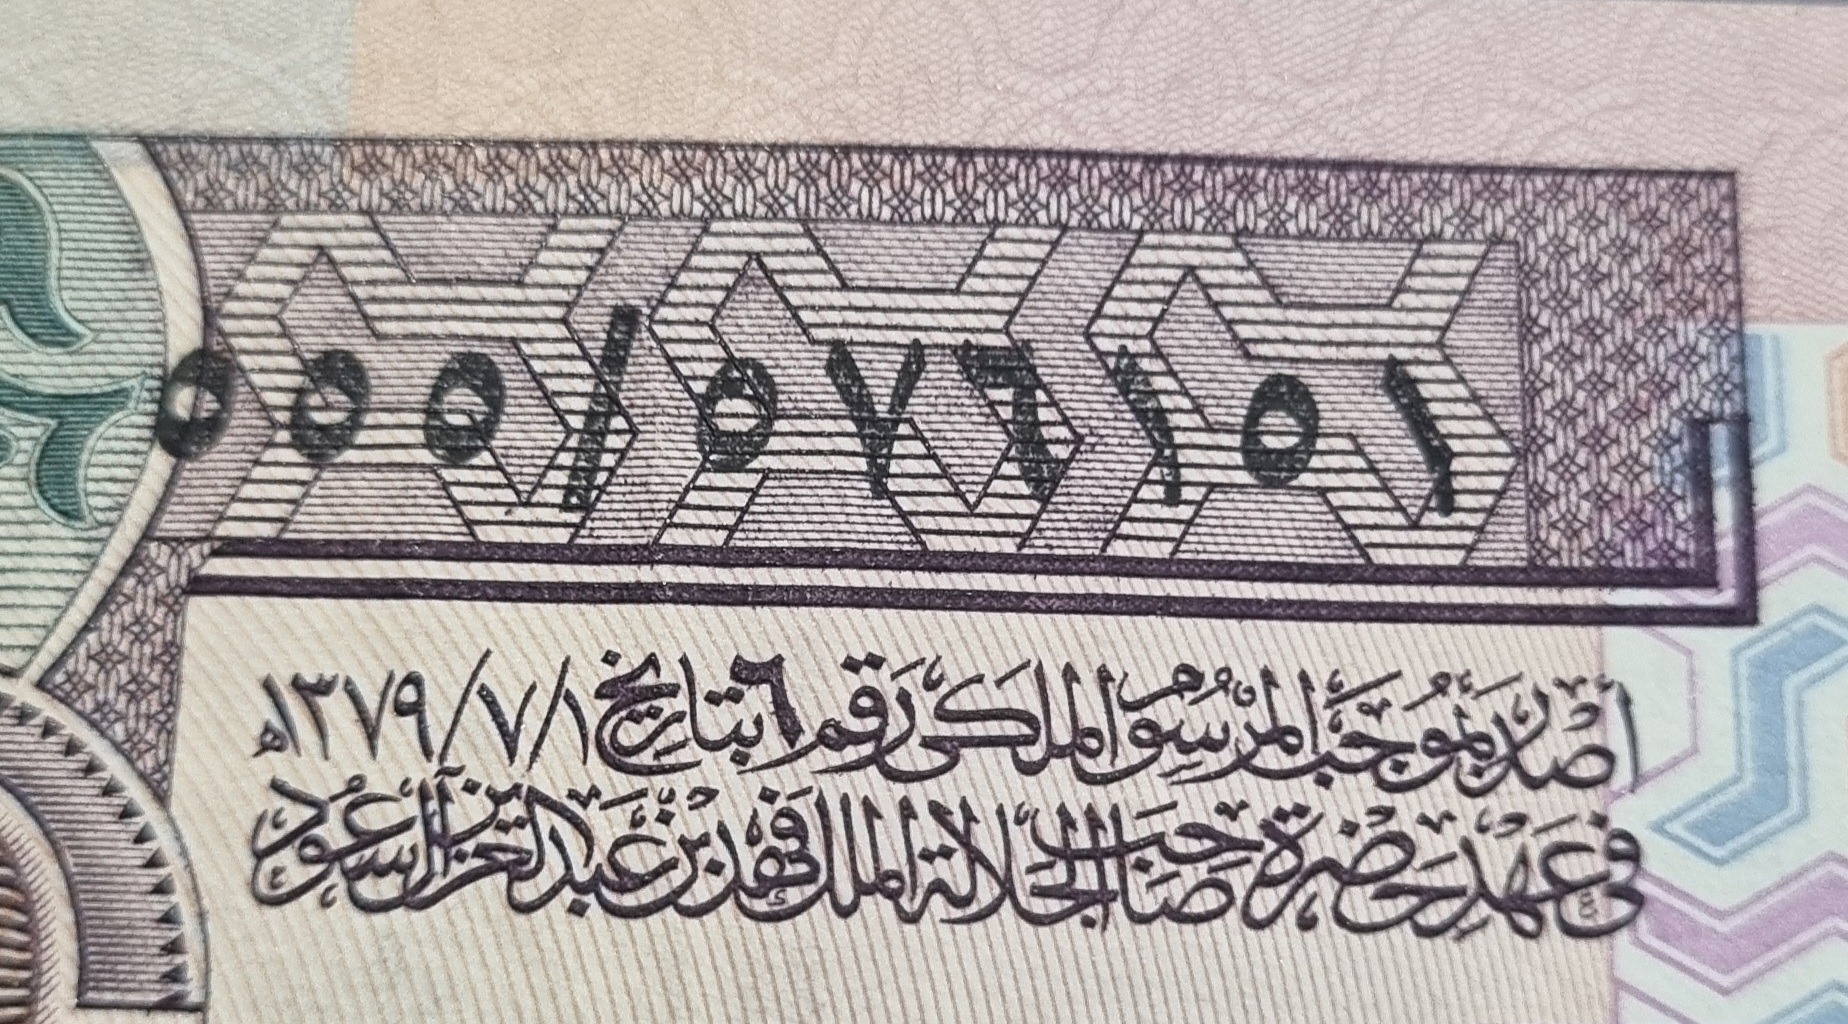 ٥٥٥/٥٧٦١٥١
أصدر بموجب المرسوم الملكي رقم ٦ بتاريخ ١/٧/١٣٧٩ه
في عهد حضرة صاحب الجلالة الملك فهد بن عبد العزيز آل سعود